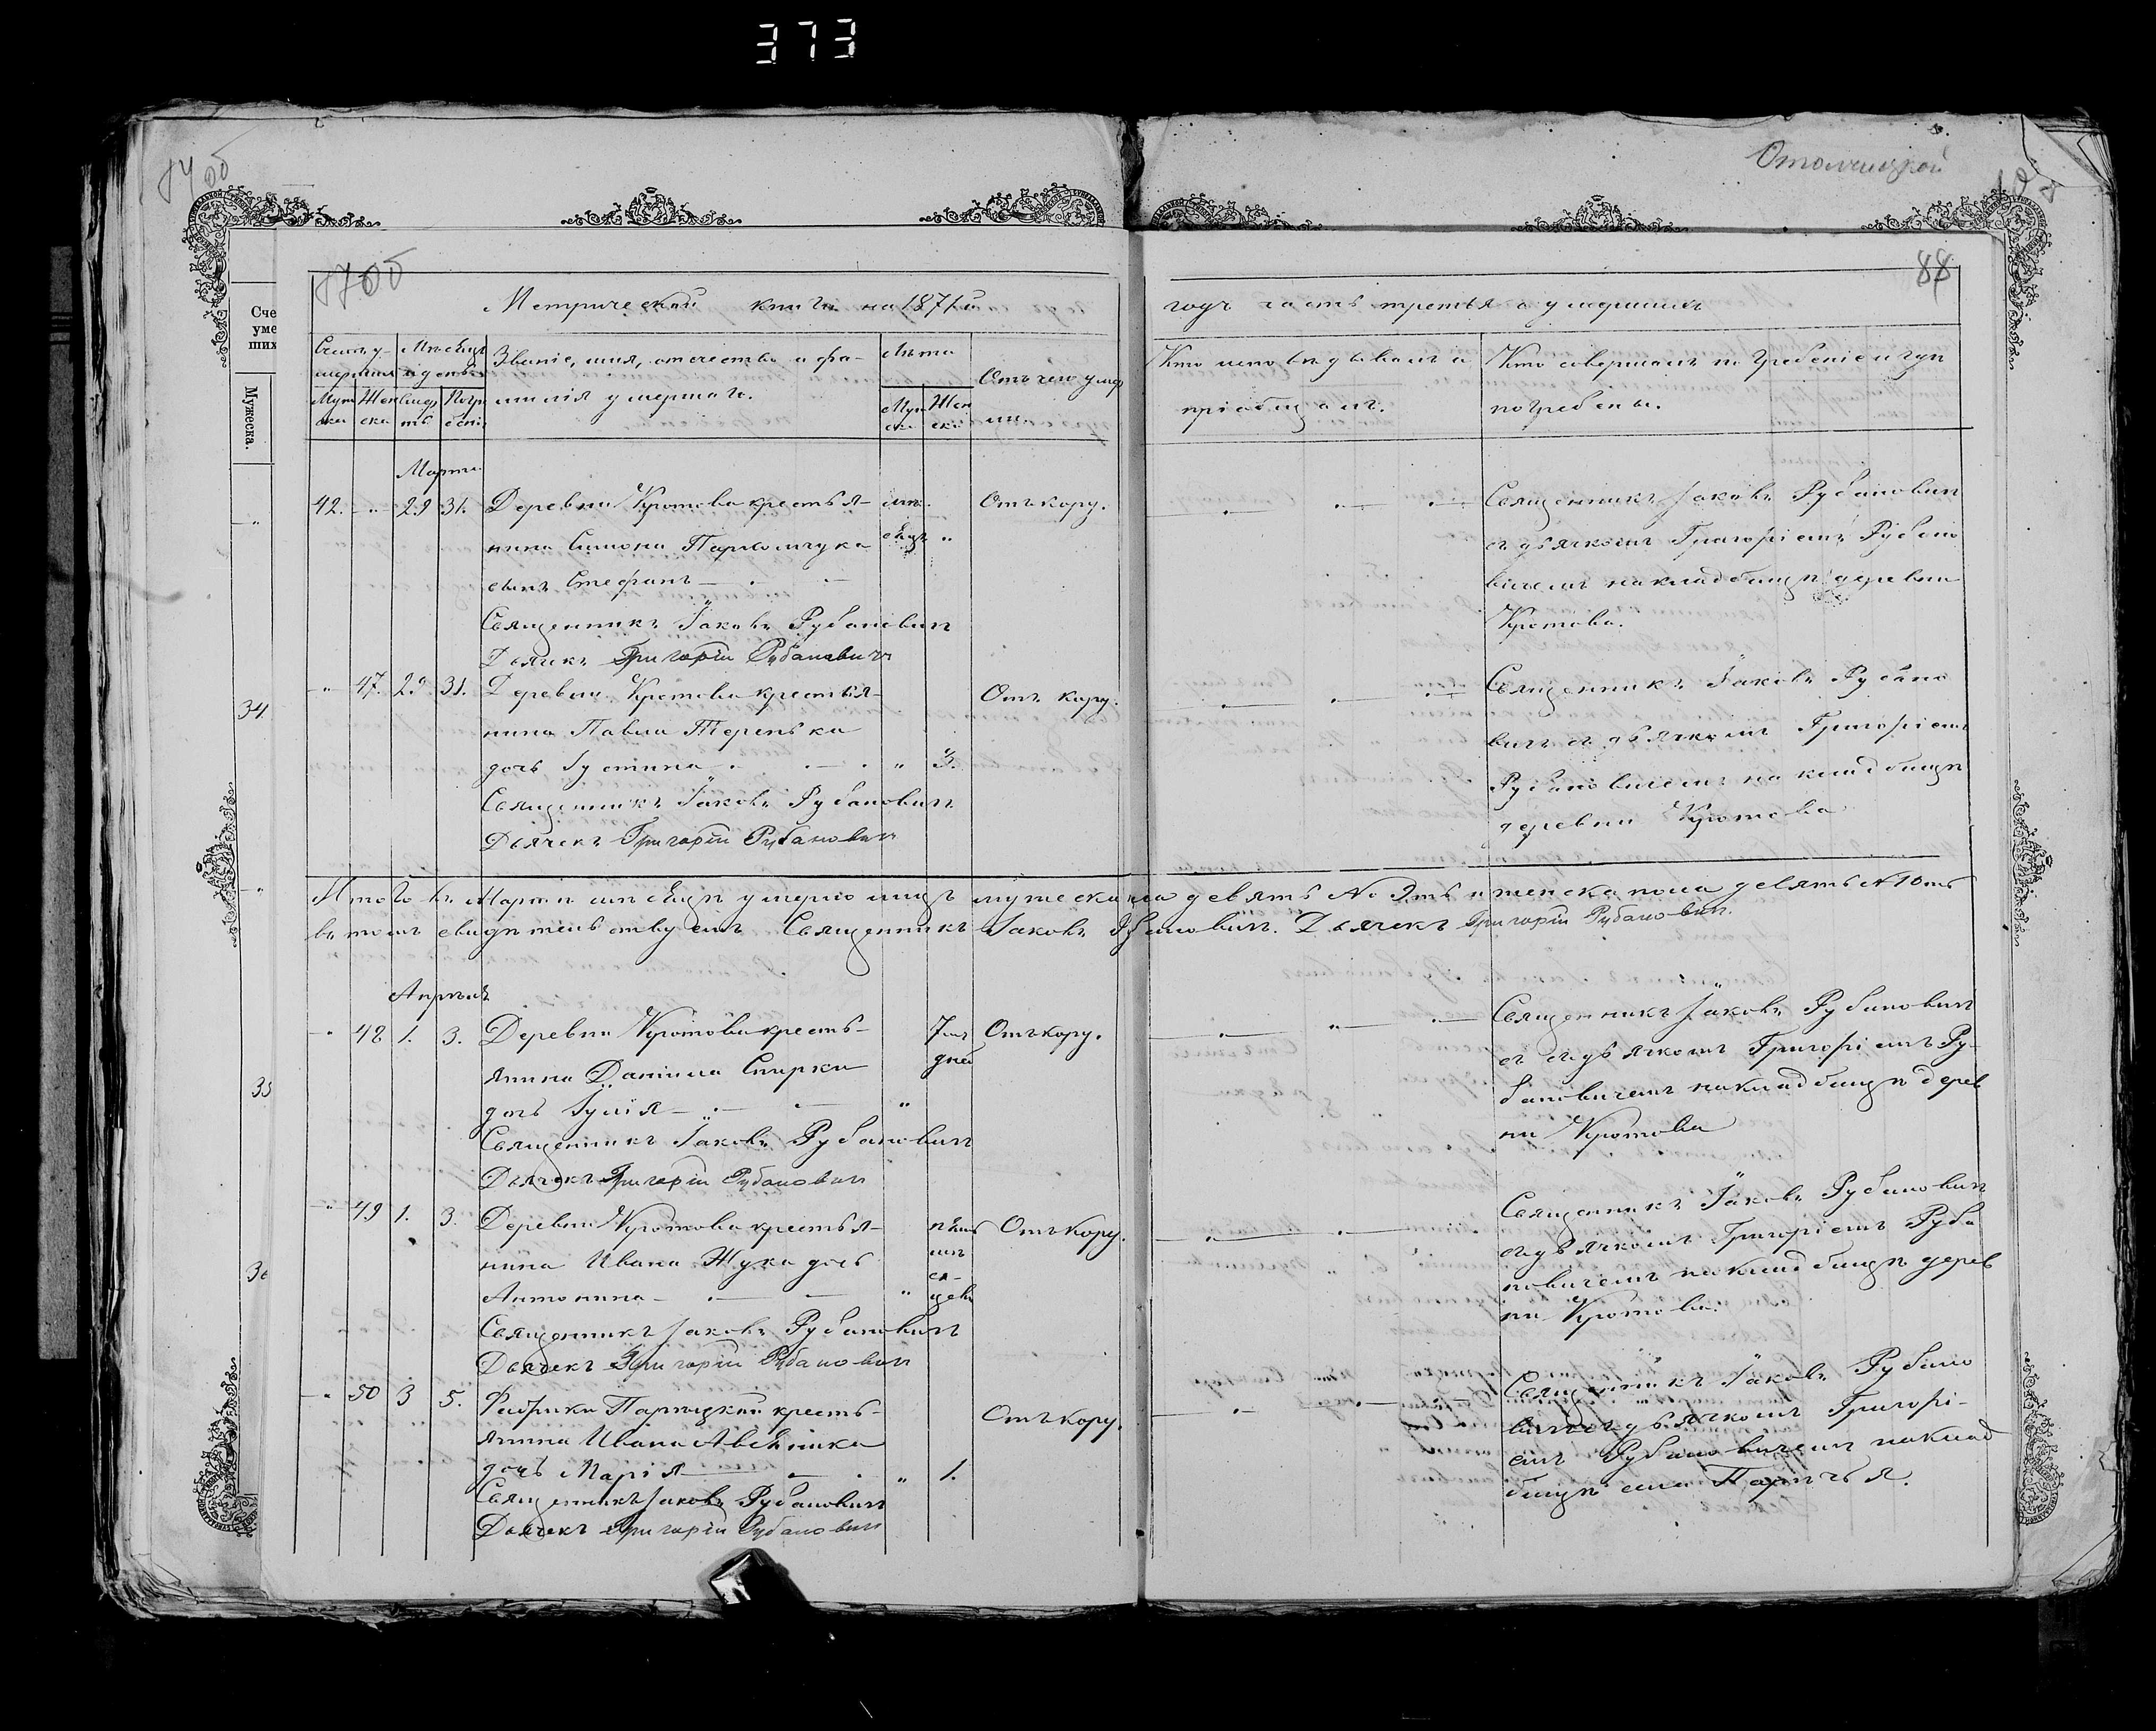 373
Столинской
84об
Сче
уме
ших
Мужеска.
34
35
36
87об
88
Метрической книги на 1871й
годъ часть третья о умершихъ
Счетъ у-
мершихъ
Муж
ска
Жен
ска
Мѣсяцъ
и день
Смер
ть
Погр
ебенія
Званіе, имя, отчество и фа-
милія умершаго.
Лѣта
Муж
ска
Жен
ска
Отъ чего умер
ли.
Кто исповѣдывалъ и
пріобщалъ.
Кто совершалъ погребеніе и гдѣ
погребены.
Марта
42. " 29 31. Деревни Кротова крестья-
нина Симона Пархомчука
сынъ Стефанъ
мѣ.
сяцъ "
Отъ кору.
Священникъ Іаковъ Рубановичъ
Дьячекъ Григорій Рубановичъ
Священникъ Іаковъ Рубановичъ
съ дьячкомъ Григоріемъ Рубано
вичемъ на кладбищѣ деревни
Кротова.
" 47. 29 31. Деревни Кротова крестья-
нина Павла Теренька
дочь Іустина " 3.
Отъ кору.
Священникъ Іаковъ Рубановичъ
Дьячекъ Григорій Рубановичъ
Священникъ Іаковъ Рубано
вичъ съ дьячкомъ Григоріемъ
Рубановичемъ на кладбищѣ
деревни Кротова
Итого въ Мартѣ мѣсяцѣ умерло лицъ мужеска пола девять № 9ть и женска пола девять № 10ть
въ томъ свидѣтельствуемъ Священникъ Іаковъ Рубановичъ. Дьячекъ Григорій Рубановичъ.
Апрѣль
" 48 1. 3. Деревни Кротова кресть-
янина Даніила Спирки
дочь Іулія "
7мь
дней
Отъ кору.
Священникъ Іаковъ Рубановичъ
Дьячекъ Григорій Рубановичъ
Священникъ Іаковъ Рубановичъ
съ дьячкомъ Григоріемъ Ру-
бановичемъ на кладбищѣ дерев
ни Кротова
" 49 1. 3. Деревни Кротова крестья-
нина Ивана Жука дочь
Антонина "
мѣ
ся-
цевъ
Отъ кору.
Священникъ Іаковъ Рубановичъ
Дьячекъ Григорій Рубановичъ
Священникъ Іаковъ Рубановичъ
съ дьячкомъ Григоріемъ Руба
новичемъ на кладбищѣ дерев
ни Кротова.
" 50 3 5. Фабрики Парицкой кресть-
янина Ивана Авсѣника
дочь Марія " 1.
Отъ кору.
Священникъ Іаковъ Рубановичъ
Дьячекъ Григорій Рубановичъ
Священникъ Іаковъ Рубано
вичъ съ дьячкомъ Григорі-
емъ Рубановичемъ на клад
бищѣ села Парѣчья.